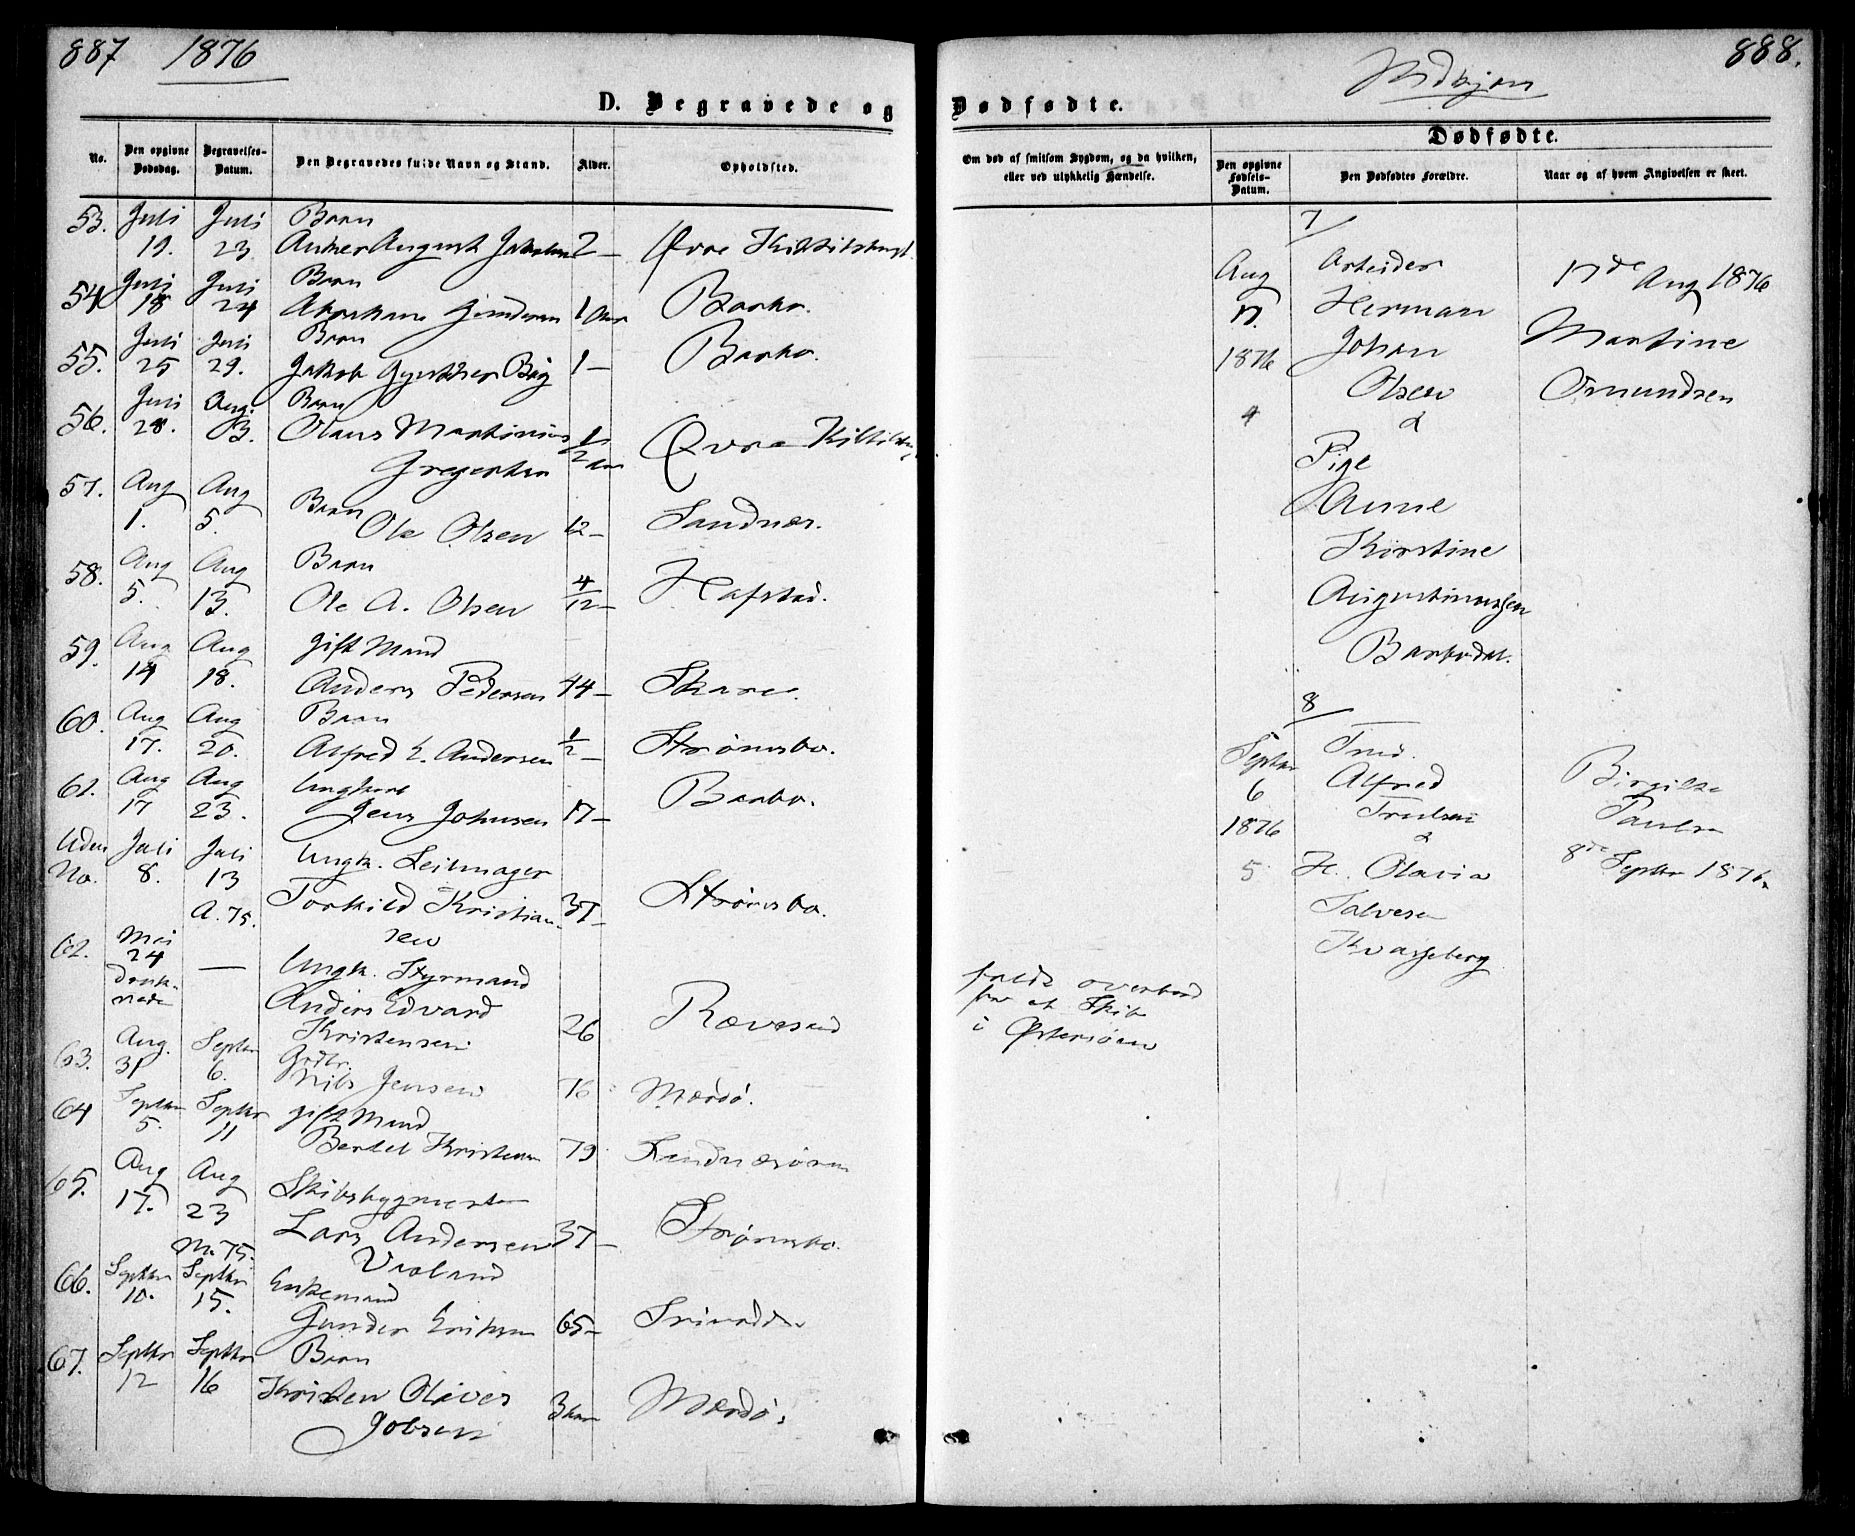 887 1876
D. Begravede og
No.
Den opgivne Dødsdag.
Begravelses-Datum.
Den Begravedes fulde Navn og Stand.
Alder.
Opholdsted.
53. Juli Juli Barn
19. 23. August 2 — Øvre
54 Juli Juli Barn
18 24 1 Barbo.
55. Juli Juli Barn
25 29. Jakob 1 — Barbo.
56. Juli Aug. Barn
28. 3. Olaus Martinius 1/2 Øvre
57. Aug Aug Barn
1. 5. Ole Olsen 12 — Sandnæs.
58. Aug Aug Barn
5. 13. Ole A. Olsen 4/12 — Hafstad.
59. Aug Aug gift Mand
14 18. Anders Pedersen 44 — Skare.
60. Aug Aug Barn
17. 20. Alfred E. Andersen 1/2 — Strømsbo.
61. Aug Aug Ungkarl
17 23. Jens Johnsen 17 — Barbo.
Uden Juli Juli Ungk. Seilmager
No. 8. 13
A. 75. Torkild Kristian 37 — Strømsbo.
sen
62. Mai
24 — Ungk. Styrmand
druk-
nede Anders Edvard
Kristensen 26 Rævesand
63. Aug. Septbr Grdbr.
31 6. Nils Jensen 76 Mærdø.
64 Septbr Septbr gift Mand
5. 11 Bertel Kristensen 79
65. Aug Aug Skibsbygmester
17. 23 Lars Andersen 37 — Strømsbo.
M. 75. Vaaland
66. Septbr Septbr Enkemand
10. 15. Gunder Eriksen 65 —
67. Septbr Septbr Barn
12 16 Kristen Oliver
Jobsen 3 Mærdø.
888.
Dødfødte.
Om død af smitsom Sygdom, og da hvilken,
eller ved ulykkelig Hændelse.
Dødfødte.
Den opgivne Fødsels-Datum.
Den Dødfødtes Forældre.
Naar og af hvem Angivelsen er skeet.
7
Aug Arbeider 17de Aug 1876
17. Herman Martine
1876 Johan Omundsen
Olsen
4 &
Pige
Anne
Kirstine
Barbodal.
8
Septbr
6 Alfred
1876 Trulsen
& 8de Septbr 1876.
5 H. Olavia
Salvesen
faldt overbord
fra et Skib
i Østersøen